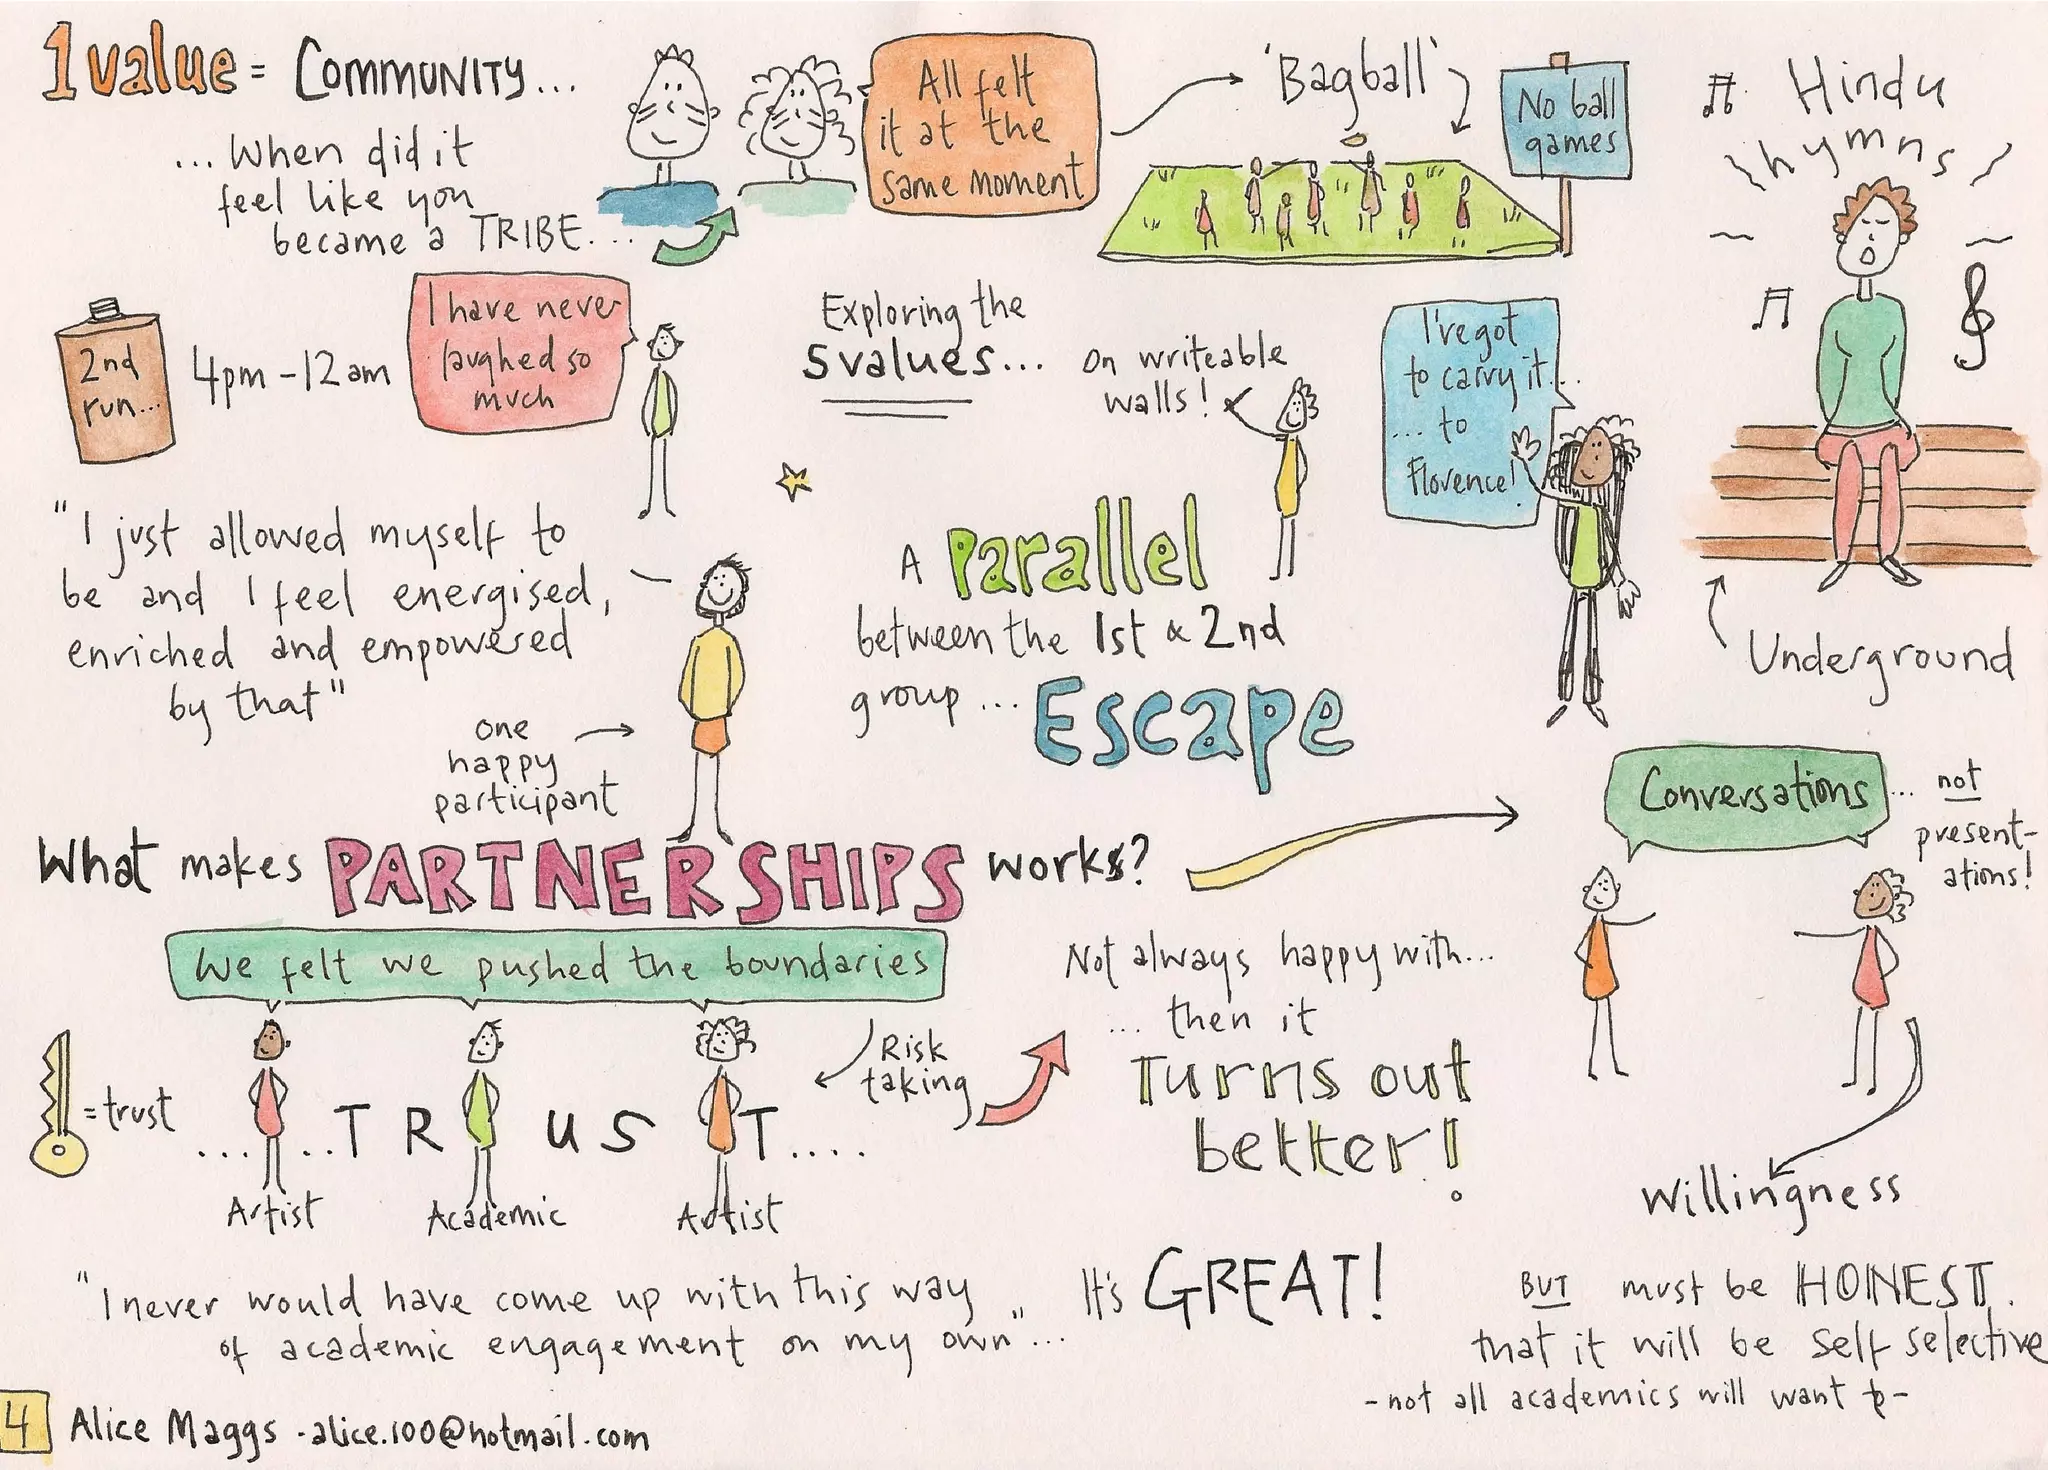 1 value = COMMUNITY...
...When did it
feel like you
became a TRIBE...
All felt
it at the
same moment
'Bagball'
No ball
games
Hindu
hymns
2nd
run...
4pm - 12am
I have never
laughed so
much
Exploring the
5 values...
on writeable
walls!
I've got
to carry it...
... to
Florence!
"I just allowed myself to
be and I feel energised,
enriched and empowered
by that"
one
happy
participant
A Parallel
between the 1st & 2nd
group... Escape
Underground
What makes PARTNERSHIPS works?
Conversations
... not
present-
ations!
We felt we pushed the boundaries
= trust
... ... T R U S T ....
Artist
Academic
Artist
Risk
taking
Not always happy with...
... then it
Turns out
better!
Willingness
"I never would have come up with this way
of academic engagement on my own"...
It's GREAT!
BUT must be HONEST.
that it will be self selective
- not all academics will want to -
4
Alice Maggs - alice.100@hotmail.com